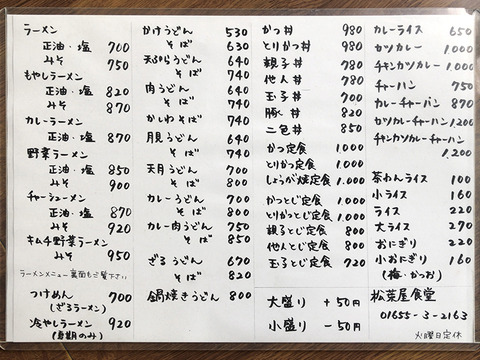 ラーメン
正油・塩 700
みそ 750
もやしラーメン
正油・塩 820
みそ 870
カレーラーメン
正油・塩 870
野菜ラーメン
正油・塩 850
みそ 900
チャーシューメン
正油・塩 870
みそ 920
キムチ野菜ラーメン
みそ 950
ラーメンメニュー裏面もご覧下さい
つけめん 700
(ざるラーメン)
冷やしラーメン 920
(夏期のみ)
かけうどん 530
そば 630
天ぷらうどん 640
そば 740
肉うどん 640
そば 740
かしわそば 740
月見うどん 640
そば 740
天月うどん 700
そば 800
カレーうどん 700
そば 800
カレー肉うどん 750
そば 850
ざるうどん 720
そば 820
鍋焼きうどん 800
かつ丼 980
とりかつ丼 980
親子丼 780
他人丼 780
玉子丼 700
豚丼 820
二色丼 850
かつ定食 1.000
とりかつ定食 1.000
しょうが焼定食 1.000
かつとじ定食 1.000
とりかつとじ定食 1.000
親子とじ定食 800
他人とじ定食 800
玉子とじ定食 720
大盛り +50円
小盛り -50円
カレーライス 650
カツカレー 1.000
チキンカツカレー 1.000
チャーハン 750
カレーチャーハン 870
カツカレーチャーハン 1.200
チキンカツカレーチャーハン
1.200
茶わんライス 100
小ライス 160
ライス 220
大ライス 270
おにぎり 220
小おにぎり 160
(梅・かつお)
松葉屋食堂
01655-3-2163
火曜日定休